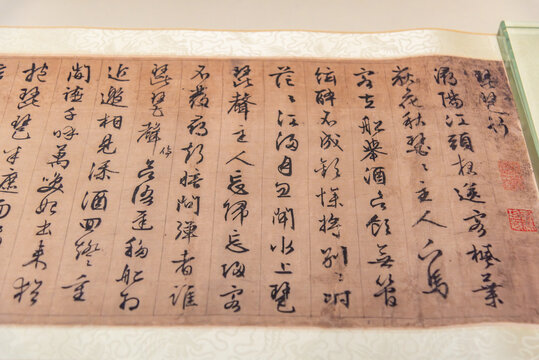 琵琶行
潯陽江頭夜送客楓葉
荻花秋瑟〻主人下馬
客在船舉酒欲飲無管
絃醉不成歡慘將別〻時
茫〻江浸月忽聞水上琵
琶聲主人忘歸客
不發尋聲暗問彈者誰
琵琶聲停欲語遲移船相
近邀相見添酒回燈重
開宴千呼萬喚始出來猶
抱琵琶半遮面